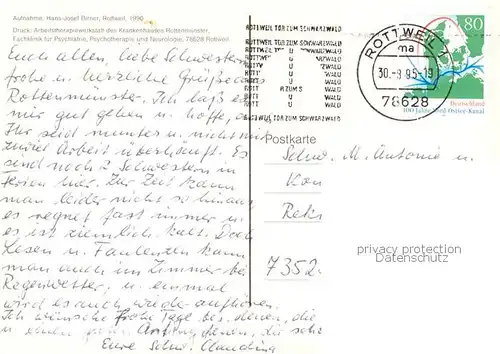 Aufnahme: Hans-Josef Birner, Rottweil, 1990
Druck: Arbeitstherapiewerkstatt des Krankenhauses Rottenmünster,
Fachklinik für Psychiatrie, Psychotherapie und Neurologie, 78628 Rottweil
Euch allen, liebe Schwestern
frohe u. herzliche Grüße aus
Rottenmünster. Ich laß es
mir gut gehen u. hoffe,
Ihr seid munter u. nicht mit
zuviel Arbeit überhäuft. Es
sind noch 2 Schwestern in
Ferien hier. Zur Zeit kann
man leider nicht so hinaus,
es regnet fast immer u.
es ist ziemlich kalt. Doch
Lesen u. Faulenzen kann
man auch im Zimmer bei
Regenwetter. u. einmal
wird es auch wieder aufhören.
Ich wünsche frohe Tage bes. denen, die
u. einen guten Anfang denen, die
Eure Schw. Claudina
ROTTWEIL TOR ZUM SCHWARZWALD
ROTTWEIL TOR ZUM SCHWARZWALD
ROTTWEIL TOR ZUM SCHWARZWALD
ROTTWEIL
ma
30.-8.95-19
78628
80
Deutschland
100 Jahre Nord-Ostsee-Kanal
Postkarte
Schw. M. Antonie u.
Kon
Rek
7352
privacy protection
Datenschutz